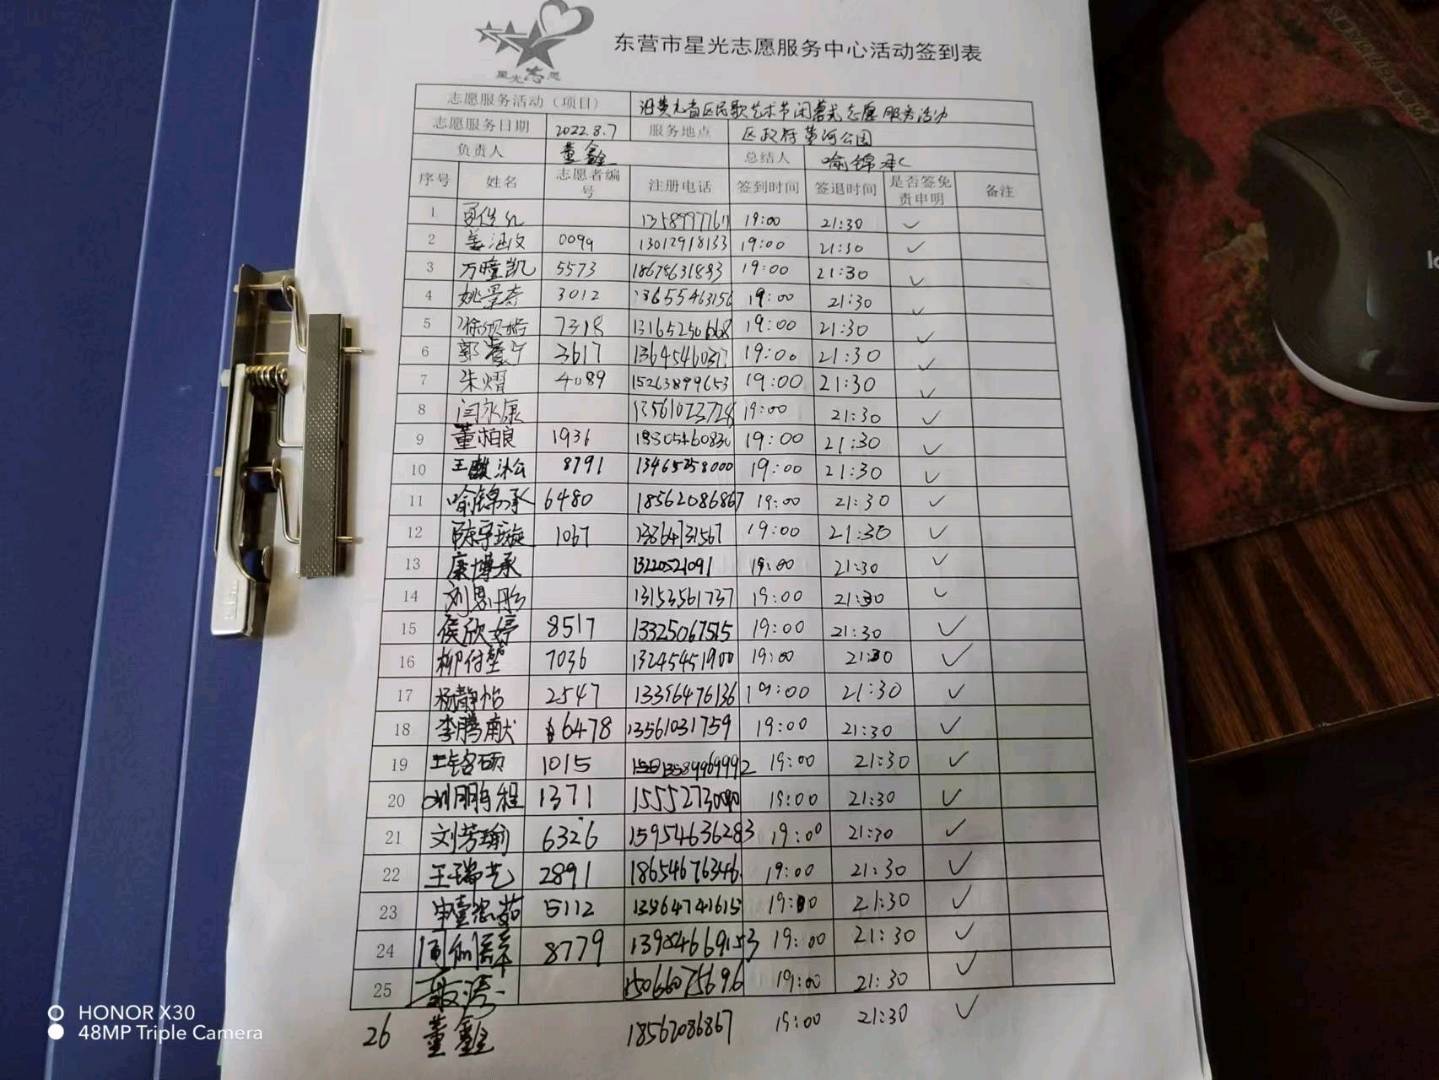 星光志愿
东营市星光志愿服务中心活动签到表
志愿服务活动（项目） 艺术节闭幕式志愿服务活动
志愿服务日期 2022.8.7 服务地点 区政府黄河公园
负责人 董鑫 总结人 喻锦承
序号 姓名 志愿者编号 注册电话 签到时间 签退时间 是否签免责申明 备注
1 19:00 21:30 ✓
2 0099 13012918133 19:00 21:30 ✓
3 万瞳凯 5573 18678631883 19:00 21:30 ✓
4 3012 19:00 21:30 ✓
5 7318 13165250668 19:00 21:30 ✓
6 3617 13645460317 19:00 21:30 ✓
7 朱熠 4089 15263899653 19:00 21:30 ✓
8 闫永康 19:00 21:30 ✓
9 董湘良 1936 18305460830 19:00 21:30 ✓
10 8791 13465258000 19:00 21:30 ✓
11 喻锦承 6480 18562086867 19:00 21:30 ✓
12 陈宇璇 1067 13864731567 19:00 21:30 ✓
13 康博承 13220521091 19:00 21:30 ✓
14 刘思彤 13153561737 19:00 21:30 ✓
15 侯欣婷 8517 13325067515 19:00 21:30 ✓
16 7036 13245451900 19:00 21:30 ✓
17 杨静怡 2547 13356476136 19:00 21:30 ✓
18 李腾献 6478 13561031759 19:00 21:30 ✓
19 王铭硕 1015 19:00 21:30 ✓
20 1371 19:00 21:30 ✓
21 刘芳瑜 6326 15954636283 19:00 21:30 ✓
22 王瑞艺 2891 18654676346 19:00 21:30 ✓
23 5112 19:00 21:30 ✓
24 8779 13954669153 19:00 21:30 ✓
25 15066075696 19:00 21:30 ✓
26 董鑫 18562086867 19:00 21:30 ✓
HONOR X30
48MP Triple Camera